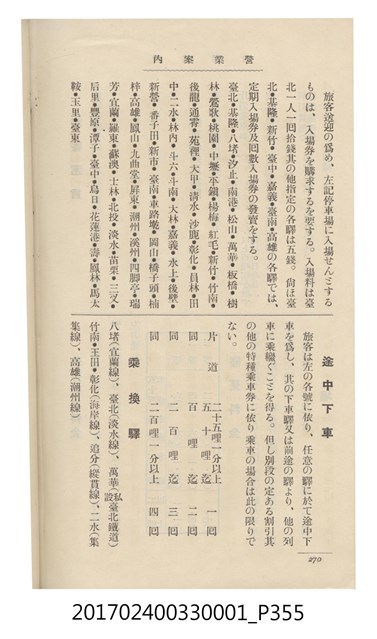 營業案內
旅客送迎の爲め、左記停車場に入場せんとする
ものは、入場券を購求するを要する。入場料は臺
北一人一囘拾錢其の他指定の各驛は五錢。尙ほ臺
北・基隆・新竹・臺中・嘉義・臺南・高雄の各驛では、
定期入場券及囘數入場券の發賣をする。
臺北・基隆・八堵・汐止・南港・松山・萬華・板橋・樹
林・鶯歌・桃園・中壢・平鎭・楊梅・紅毛・新竹・竹南・
後龍・通霄・苑裡・大甲・淸水・沙鹿・彰化・員林・田
中・二水・林內・斗六・斗南・大林・嘉義・水上・後壁・
新營・番子田・新市・臺南・車路墘・岡山・橋子頭・楠
梓・高雄・鳳山・九曲堂・屛東・潮州・溪州・四脚亭・瑞
芳・宜蘭・羅東・蘇澳・士林・北投・淡水・苗栗・三叉・
后里・豐原・潭子・臺中・烏日・花蓮港・壽・鳳林・馬太
鞍・玉里・臺東
途中下車
旅客は左の各號に依り、任意の驛に於て途中下
車を爲し、其の下車驛又は前途の驛より、他の列
車に乘繼ぐことを得る。但し別段の定ある割引其
の他の特種乘車券に依り乘車の場合は此の限りで
ない。
片道 二十五哩一分以上五十哩迄 一囘
同 百哩迄 二囘
同 二百哩迄 三囘
同 二百哩一分以上 四囘
乘換驛
八堵(宜蘭線)、臺北(淡水線)、萬華(私設臺北鐵道)
竹南・王田・彰化(海岸線)、追分(縱貫線)、二水(集
集線)、高雄(潮州線)
270
201702400330001_P355